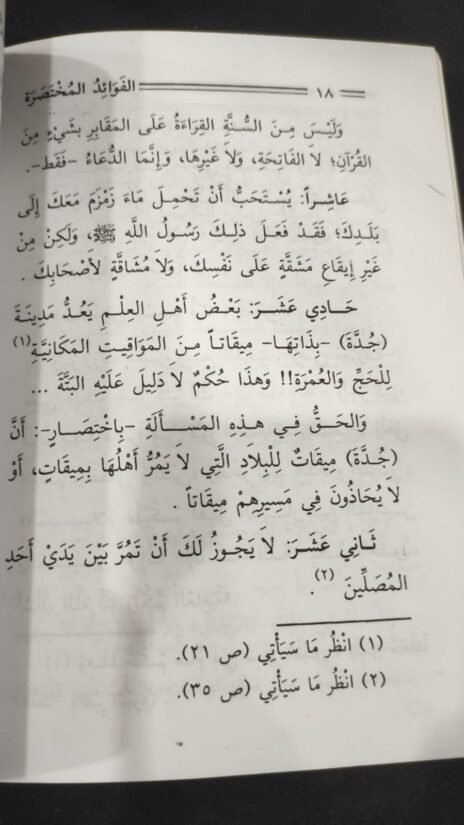 ١٨ الفَوَائِدُ المُخْتَصَرَة
وَلَيْسَ مِنَ السُّنَّةِ القِرَاءَةُ عَلَى المَقَابِرِ بِشَيْءٍ مِنَ
القُرْآنِ؛ لاَ الفَاتِحَةِ، وَلاَ غَيْرِهَا، وَإِنَّمَا الدُّعَاءُ -فَقَط-.
عَاشِراً: يُسْتَحَبُّ أَنْ تَحْمِلَ مَاءَ زَمْزَمَ مَعَكَ إِلَى
بَلَدِكَ؛ فَقَدْ فَعَلَ ذلِكَ رَسُولُ اللَّهِ ﷺ، وَلَكِنْ مِنْ
غَيْرِ إِيقَاعِ مَشَقَّةٍ عَلَى نَفْسِكَ، وَلاَ مُشَاقَّةٍ لأَصْحَابِكَ .
حَادِي عَشَرَ: بَعْضُ أَهْلِ العِلْمِ يَعُدُّ مَدِينَةَ
(جُدَّةَ) -بِذَاتِهَا- مِيقَاتاً مِنَ المَوَاقِيتِ المَكَانِيَّةِ (١)
لِلْحَجِّ وَالعُمْرَةِ!! وَهَذَا حُكْمٌ لاَ دَلِيلَ عَلَيْهِ البَتَّةَ ...
وَالحَقُّ فِي هذِهِ المَسْأَلَةِ -بِاخْتِصَارٍ-: أَنَّ
(جُدَّةَ) مِيقَاتٌ لِلْبِلاَدِ الَّتِي لاَ يَمُرُّ أَهْلُهَا بِمِيقَاتٍ، أَوْ
لاَ يُحَاذُونَ فِي مَسِيرِهِمْ مِيقَاتاً .
ثَانِي عَشَرَ: لاَ يَجُوزُ لَكَ أَنْ تَمُرَّ بَيْنَ يَدَيْ أَحَدِ
المُصَلِّينَ (٢).
(١) انْظُر مَا سَيَأْتِي (ص ٢١).
(٢) انْظُر مَا سَيَأْتِي (ص ٣٥).